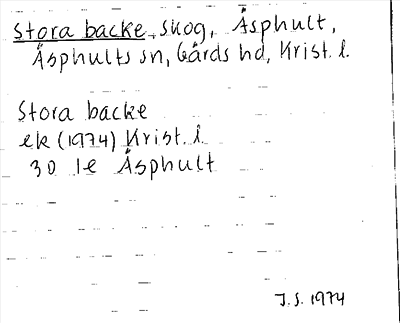 Stora backe, skog, Åsphult,
Åsphults sn, Gärds hd, Krist. l.
Stora backe
ek (1974) Krist. l.
30 1e Åsphult
J.S. 1974